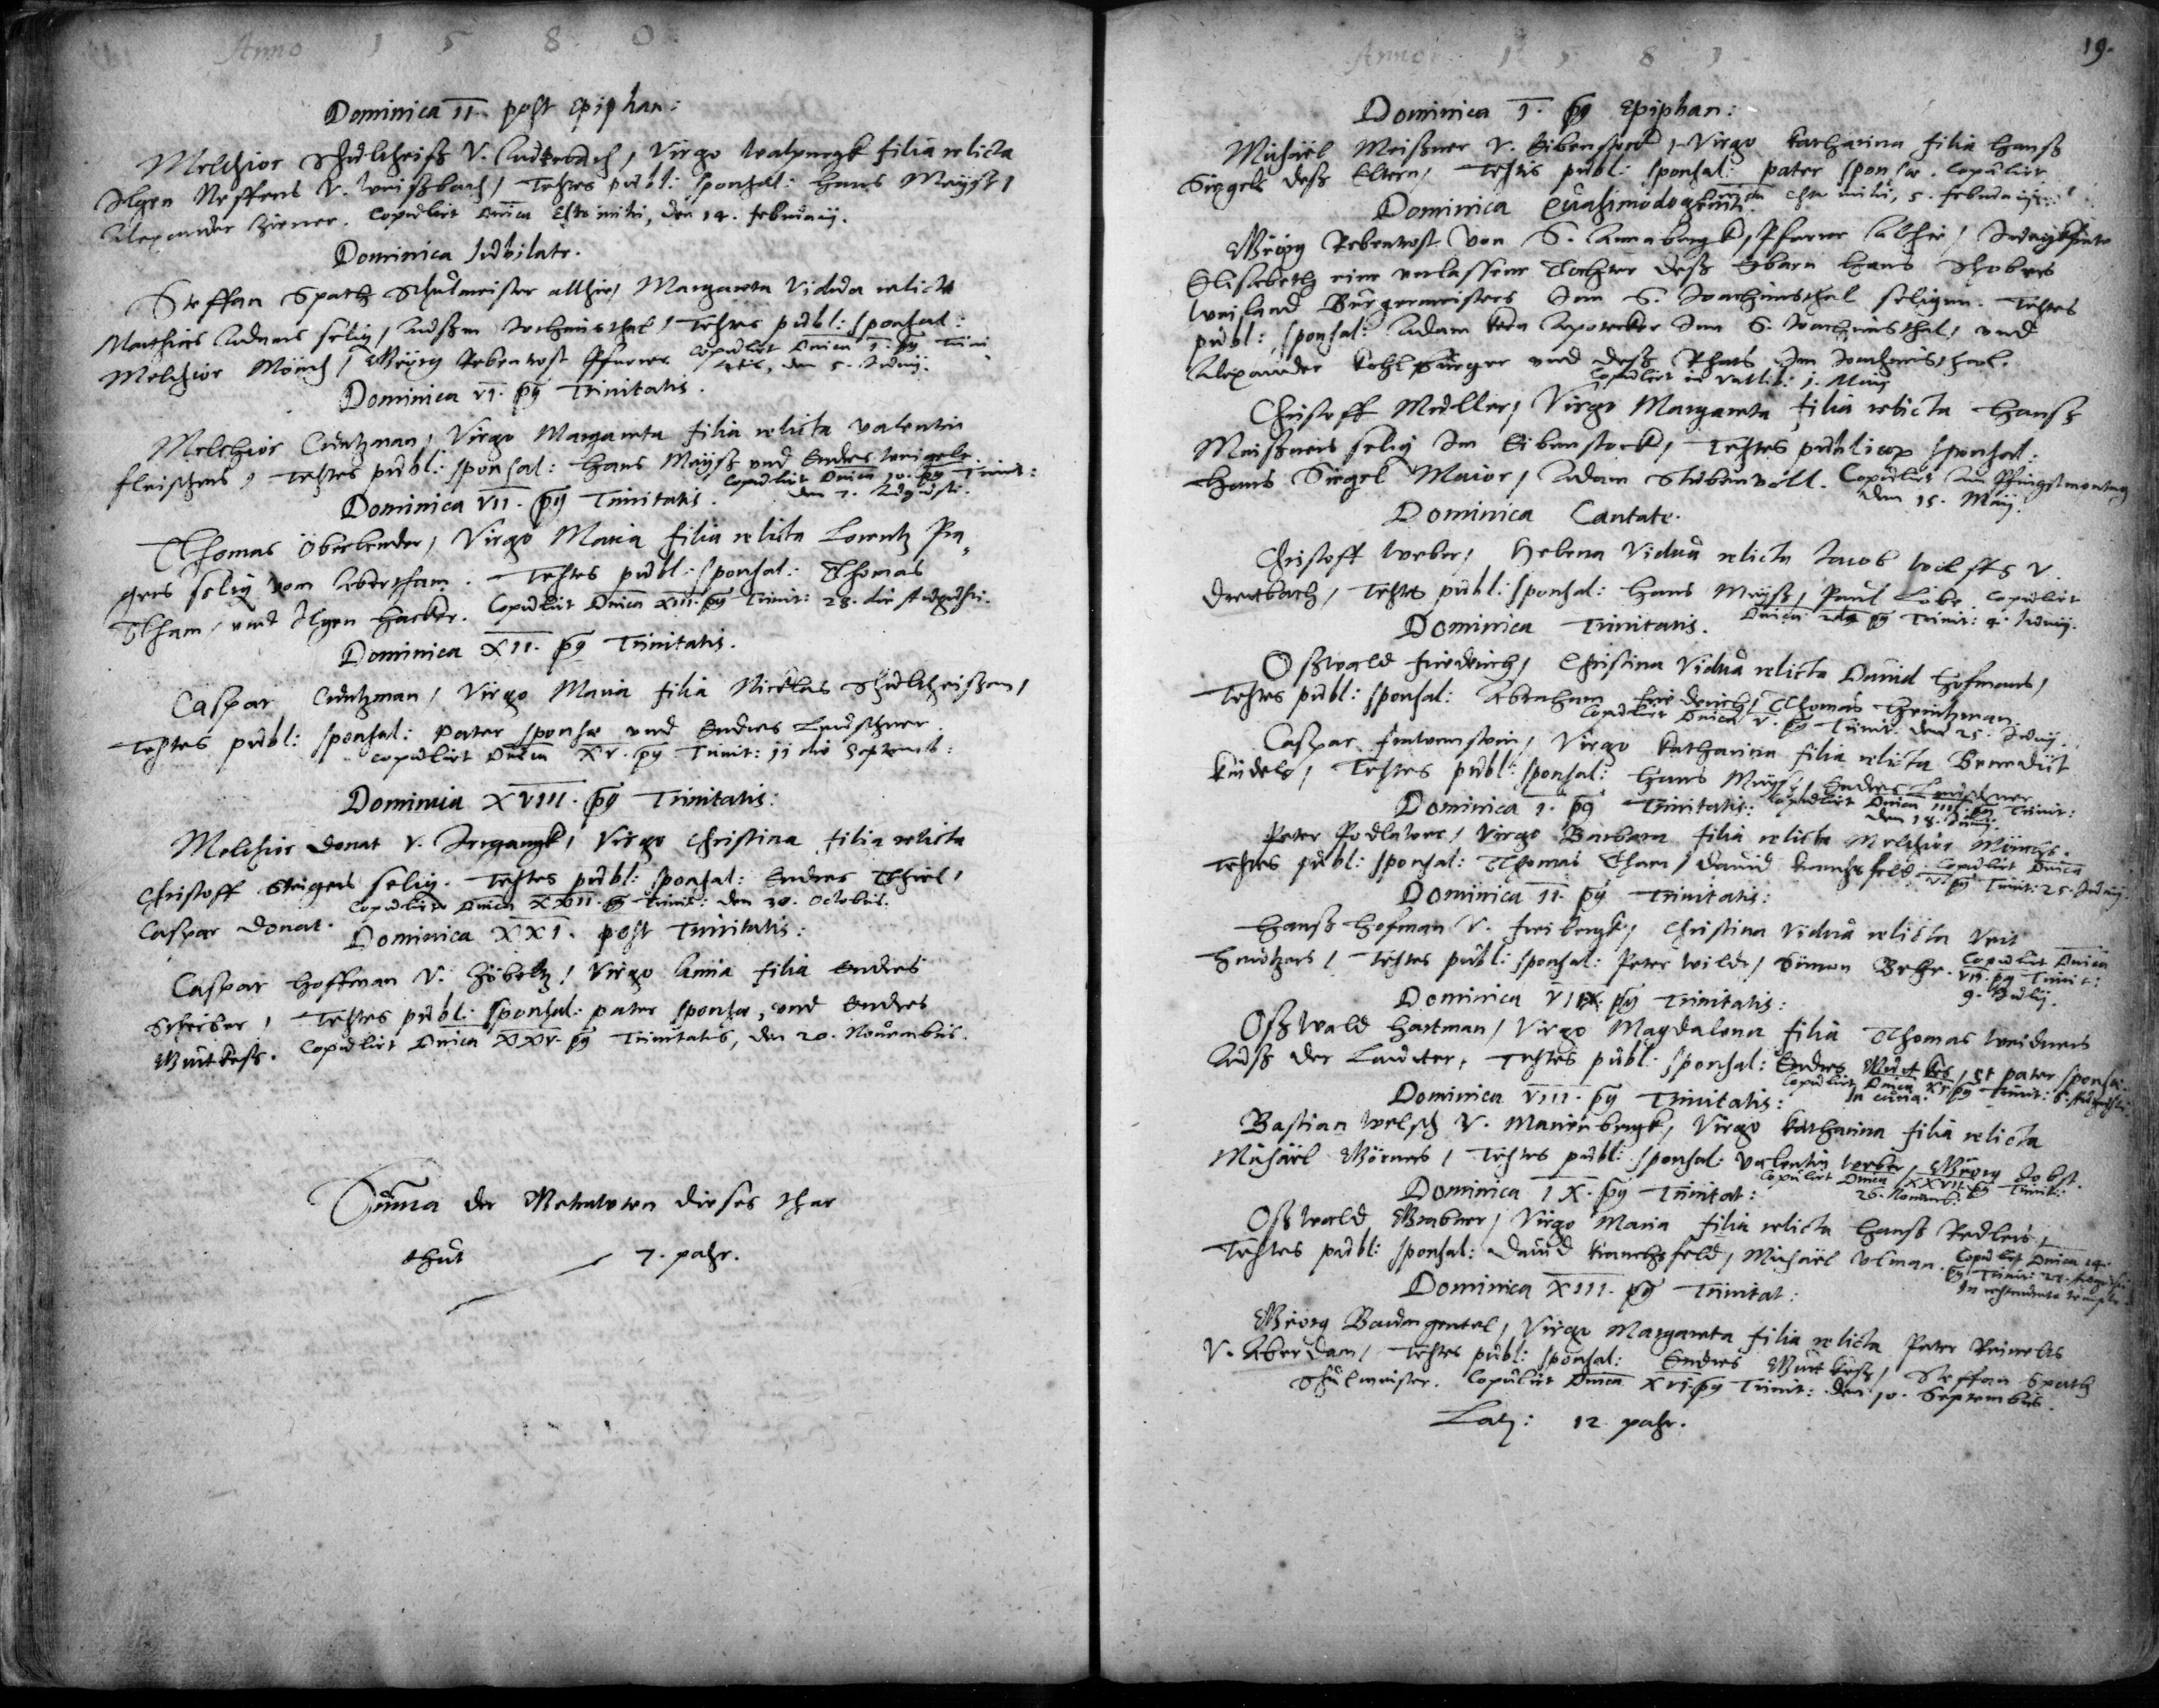 Anno 1 5 8 0
Dominica II. post Epiphan:
Melchior Schultheiß V. Lauterbach, Virgo Walpurgk filia relicta
Ilgen Neffens V. Weißbach, Testes publ: sponsal: Hans Mayß,
Alexander Copulirt Dnica Esto mihi, den 14. Februarij.
Dominica Jubilate.
Steffan Spath Schulmeister allhie, Margareta Vidua relicta
Matthias Adams selig, Außm Jochimsthal, Testes publ: sponsal:
Melchior Mönch, Georg Rebentrost Pfarrer Copulirt Dnica I. pʒ Trini
tatis, den 5. Junij.
Dominica VI. pʒ Trinitatis.
Melchior Cuntzman, Virgo Margareta filia relicta Valentin
Fleischers, Testes publ: sponsal: Hans Mayß und Endres Weigele.
Copulirt Dnica 10. pʒ Trinit:
den 7. Augusti.
Dominica VII. pʒ Trinitatis.
Thomas Oberlender, Virgo Maria filia relicta Lorentz Pra
gers selig vom Abertham. Testes publ: sponsal: Thomas
Tham, und Ilgen Hacker. Copulirt Dnica XIII. pʒ Trinit: 28. die Augusti.
Dominica XII. pʒ Trinitatis.
Caspar Cuntzman, Virgo Maria filia Nicklas Schultheißen,
Testes publ: sponsal: Pater sponsæ und Endres Lauschner.
Copulirt Dnica XV. pʒ Trinit: 11 die Septemb:
Dominica XVIII. pʒ Trinitatis:
Melchior Donat V. Irrgangk, Virgo Christina filia relicta
Christoff Steigers selig. Testes publ: sponsal: Endres Thiel,
Caspar Donat. Copulirt Dnica XXII. pʒ Trinit: den 30. Octobris.
Dominica XXI. post Trinitatis:
Caspar Hoffman V. Zöbeltz, Virgo Anna filia Endres
Schreiber, Testes publ: sponsal: pater sponsæ, und Endres
Gutkeß. Copulirt Dnica XXV. pʒ Trinitatis, den 20. Novembris.
Summa der dieses Jhar
thut 7. pahr.
Anno 1 5 8 1
19.
Dominica I. pʒ Epiphan:
Michael Meißner V. Eibenstock, Virgo Katharina filia Hanß
Siegels deß Eltern, Testis publ: sponsal: pater sponsæ. Copulirt
Dnica Esto mihi, 5. Februarij.
Dominica Quasimodogeniti.
Georg Rebentrost von S. Annabergk, Pfarrer Alhie, Jungkfraw
Elisabeth eine verlassene Tochter deß Erbarn Hans Schobers
Weiland Bürgermeisters Inn S. Joachimsthal seligen. Testes
publ: sponsal: Adam Kern Apotecker Inn S. Joachimsthal, und
Alexander Kohl Bürger und deß Rhats Im Joachimsthal.
Copulirt in Vallib: 1. Maij
Christoff Müller, Virgo Margareta filia relicta Hanß
Meißners selig Im Eibenstock, Testes publicæ sponsal:
Hans Siegel Maior, Adam Stubenvöll. Copulirt Am Pfingstmontag
den 15. Maij.
Dominica Cantate.
Christoff Weber, Helena Vidua relicta Jacob Wolffs V.
Breitbach, Testes publ: sponsal: Hans Mayß, Paul Löbe, Copulirt
Dnica pʒ Trinit: 4. Junij.
Dominica Trinitatis.
Oßwald Friedrich, Christina Vidua relicta David Hofmans,
Testes publ: sponsal: Abraham Friedrich, Thomas Heintzman.
Copulirt Dnica V. pʒ Trinit: den 25. Junij.
Caspar Frawenstein, Virgo Katharina filia relicta Benedict
Kindels, Testes publ: sponsal: Hans Mayß, Endres Lauschner
Copulirt Dnica IIII. pʒ Trinit:
den 18. Junij.
Dominica I. pʒ Trinitatis:
Peter Podlawer, Virgo Barbara filia relicta Melchior Mönchs.
Testes publ: sponsal: Thomas Tham, David Kranchsfeld. Copulirt Dnica
V. pʒ Trinit: 25. Junij.
Dominica II. pʒ Trinitatis:
Hanß Hofman V. Freibergk, Christina Vidua relicta Veit
Testes publ: sponsal: Peter Wilde, Simon Behr. Copulirt Dnica
VII. pʒ Trinit:
9. Julij.
Dominica VII. pʒ Trinitatis:
Oßwald Hartman, Virgo Magdalena filia Thomas Weidners
Auß der Lautter, Testes publ: sponsal: Endres Gutkes, et pater sponsæ.
Copulirt Dnica XI pʒ Trinit: 6. Augusti.
In curia.
Dominica VIII. pʒ Trinitatis:
Bastian Welsch V. Marienbergk, Virgo Katharina filia relicta
Michael Görners, Testes publ: sponsal: Valentin Weber, Georg Jobst.
Copulirt Dnica XXVII. pʒ Trinit:
26. Novemb:
Dominica IX. pʒ Trinitat:
Oßwald Grabner, Virgo Maria filia relicta Hanß Redlers,
Testes publ: sponsal: David Kranchsfeld, Michael Ulman. Copulirt Dnica 14.
pʒ Trinit: 27. Augusti
Dominica XIII. pʒ Trinitat:
Georg Virgo Margareta filia relicta Peter Reinolts
V. Aberdam, Testes publ: sponsal: Endres Gutkeß, Steffan Spath
Schulmeister. Copulirt Dnica XVI. pʒ Trinit: den 10. Septembris.
Latus: 12 pahr.